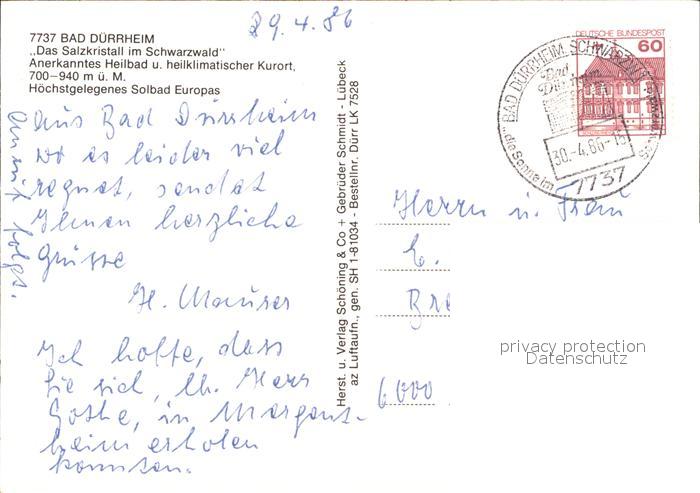 29.4.86
7737 BAD DÜRRHEIM
„Das Salzkristall im Schwarzwald"
Anerkanntes Heilbad u. heilklimatischer Kurort,
700–940 m ü. M.
Höchstgelegenes Solbad Europas
Aus Bad Dürrheim
wo es leider viel
regnet, sendet
Ihnen herzliche
Grüsse
H. Mauser
Ich hoffe, dass
Sie sich, lb. Herr
Gothe, in Mergent-
heim erholen
konnten.
folgt.
Herst. u. Verlag Schöning & Co + Gebrüder Schmidt - Lübeck
az Luftaufn., gen. SH 1-81034 - Bestellnr. Dürr LK 7528
DEUTSCHE BUNDESPOST
60
BAD DÜRRHEIM, SCHWARZW
Bad
Dürrheim
30.-4.86-15
"die Sonne im
7737
Herrn u. Frau
G.
Bre
6000
privacy protection
Datenschutz